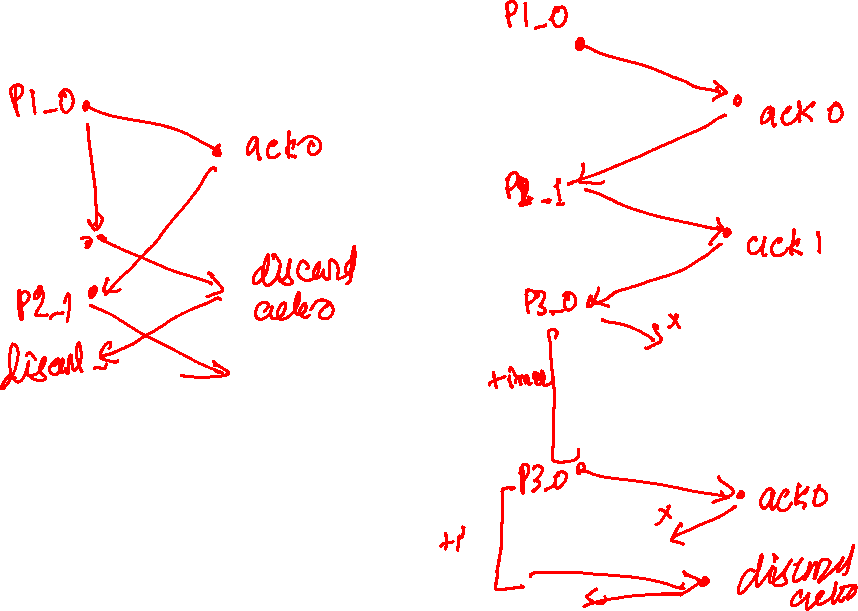 P1_0
ack0
discard
ack0
P2_1
discard
P1_0
ack 0
P2_1
ack 1
P3_0
x
timer
P3_0
ack0
x
discard
ack0